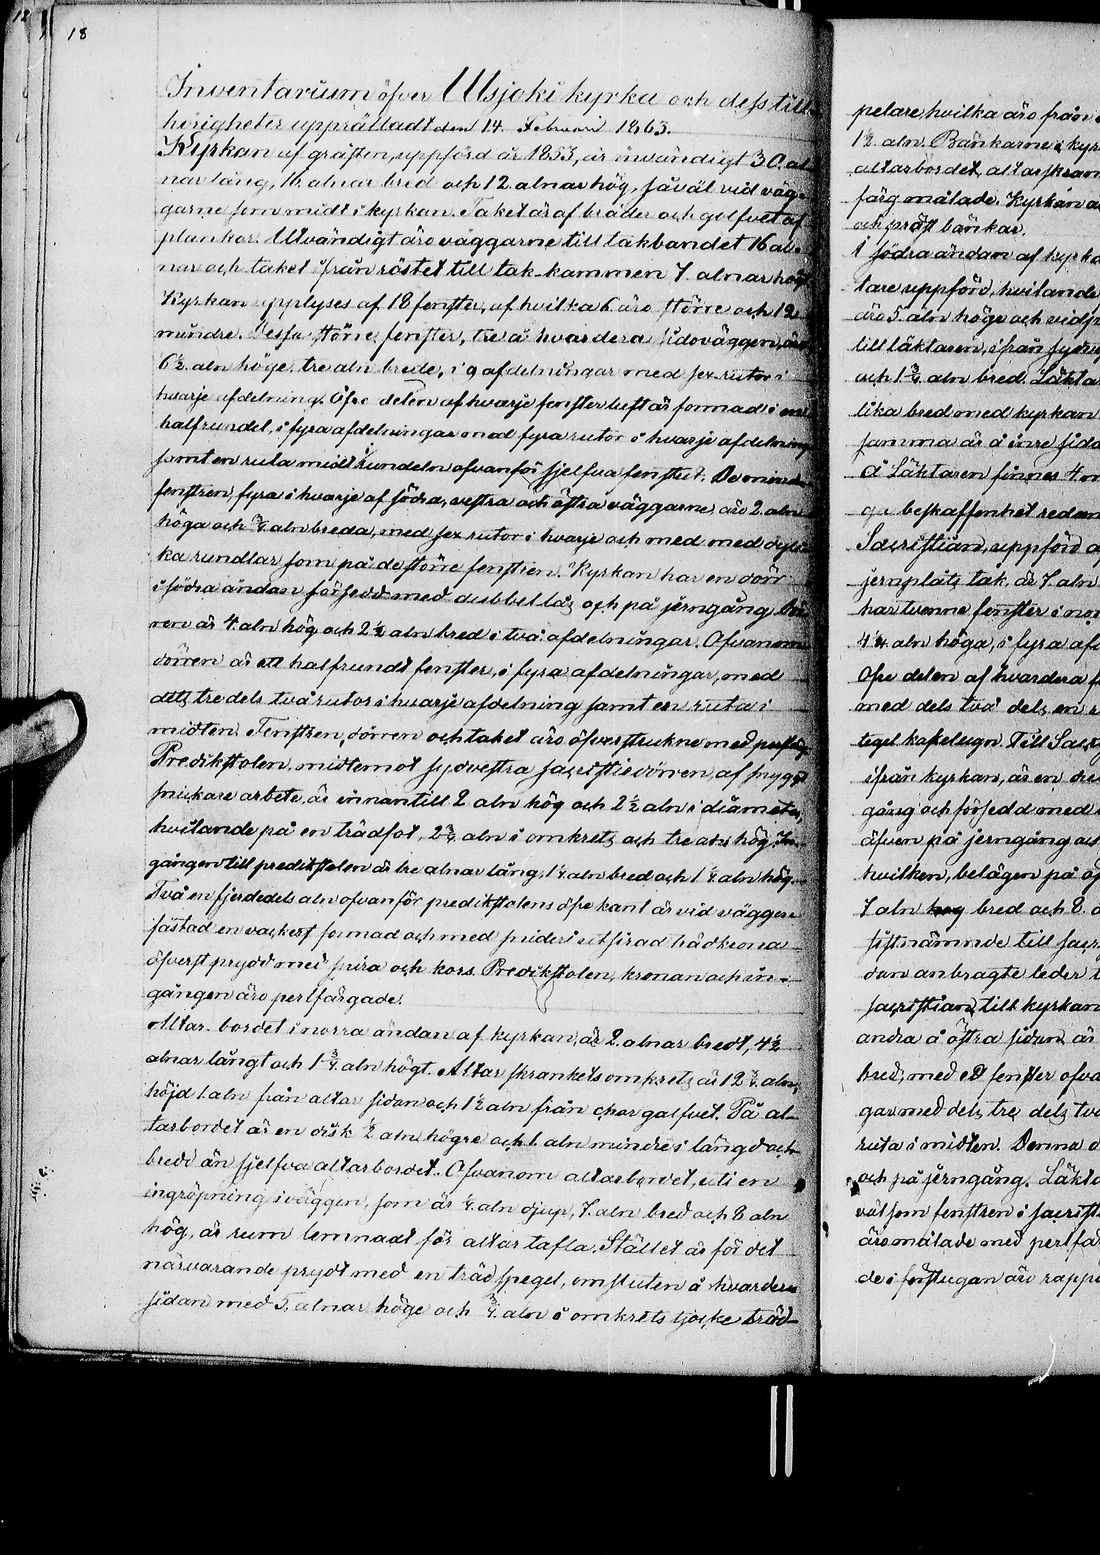 12
18
Inventarium öfver Utsjoki kyrka och dess till-
hörigheter upprättadt den 14. Februari 1863.
Kyrkan af gråsten, uppförd år 1853, är invändigt 30. al-
nar lång, 16. alnar bred och 12. alnar hög, såväl vid väg-
garne som midt i kyrkan. Taket är af bräder och golfvet af
plankor. Utvändigt äro väggarne till takbandet 16 al-
nar och taket ifrån röstet till tak-kammen 7. alnar högt
Kyrkan upplyses af 18 fenster, af hvilka 6. äro större och 12
mindre. Dessa större fenster, tre å hvardera sidoväggen, äro
6½. aln höge, tre aln brede, i 9 afdelningar med sex rutor i
hvarje afdelning. Öfre delen af hvarje fenster luft är formad i en
halfrundel, i fyra afdelningar med fyra rutor i hvarje afdelning
samt en ruta midt i rundeln ofvanför sjelfva fenstret. De mindre
fenstren, fyra i hvarje af södra, vestra och östra väggarne, äro 2. aln
höga och ¾. aln breda, med sex rutor i hvarje och med med dyli-
ka rundlar som på de större fenstren. Kyrkan har en dörr
i södra ändan försedd med dubbel lås och på jerngång. Dör-
ren är 4. aln hög och 2¼ aln bred i två afdelningar. Ofvanom
dörren är ett halfrundt fenster, i fyra afdelningar, med
dels tre dels två rutor i hvarje afdelning samt en ruta i
midten. Fenstren, dörren och taket äro öfverstrukne med perlfärg
Predikstolen, midtemot sydvestra sacristiedörren, af snyggt
snickare arbete, är innantill 2 aln hög och 2½ aln i diameter,
hvilande på en trädfot, 2¾ aln i omkrets och tre aln hög. In-
gången till predikstolen är tre alnar lång, 1¼ aln bred och 1¼ aln hög.
Två en fjerdedels aln ofvanför predikstolens öfre kant är vid väggen
fästad en vackert formad och med sirater utsirad trädkrona
öfverst prydd med spira och kors. Predikstolen, kronan och in-
gången äro perlfärgade.
Altar-bordet i norra ändan af kyrkan, är 2. alnar bredt, 4½
alnar långt och 1¾. aln högt. Altar skrankets omkrets är 12¾. aln,
höjd 1. aln från altar sidan och 1½ aln från chor golfvet. På al-
tarbordet är en disk ½ aln högre och 1. aln mindre i längd och
bredd än sjelfva altarbordet. Ofvanom altarbordet, uti en
ingröpning i väggen, som är ¼. aln djup, 7. aln bred och 8 aln
hög, är rum lemnadt för altar tafla. Stället är för det
närvarande prydt med en träd spegel, omsluten å hvardera
sidan med 5. alnar höge och ¾. aln i omkrets tjocke träd-
pelare, hvilka äro från
1½ aln. Bänkarne i kyr
altarbordet, altarskran
färg målade. Kyrkan
och präst bänkar.
I södra ändan af kyrka
tare uppförd, hvilande
äro 5. aln höge och
till läktaren, ifrån
och 1¾ aln bred. Läkta
lika bred med kyrkan
samma är å inre sida
å Läktaren finnes 4.
beskaffenhet redan
Sacristian, uppförd
jernplåts tak, är 7. aln
har tvenne fenster i nor
4¼ aln höga, i fyra afd
öfre delen af hvardera
med dels två dels en
tegel kakelugn. Till Sacr
ifrån kyrkan, är en
gång och försedd med
äfven på jerngång
hvilken, belägen på
7 aln hög bred och 8.
sistnämnde till sacr
dan anbragte leder
sacristian till kyrkan
andra å östra sidan är
bred, med ett fenster ofva
gar med dels tre dels två
ruta i midten. Denna
och på jerngång. Läkta
väl som fenstren i sacrist
äro målade med perlfär
de i förstugan äro rappa